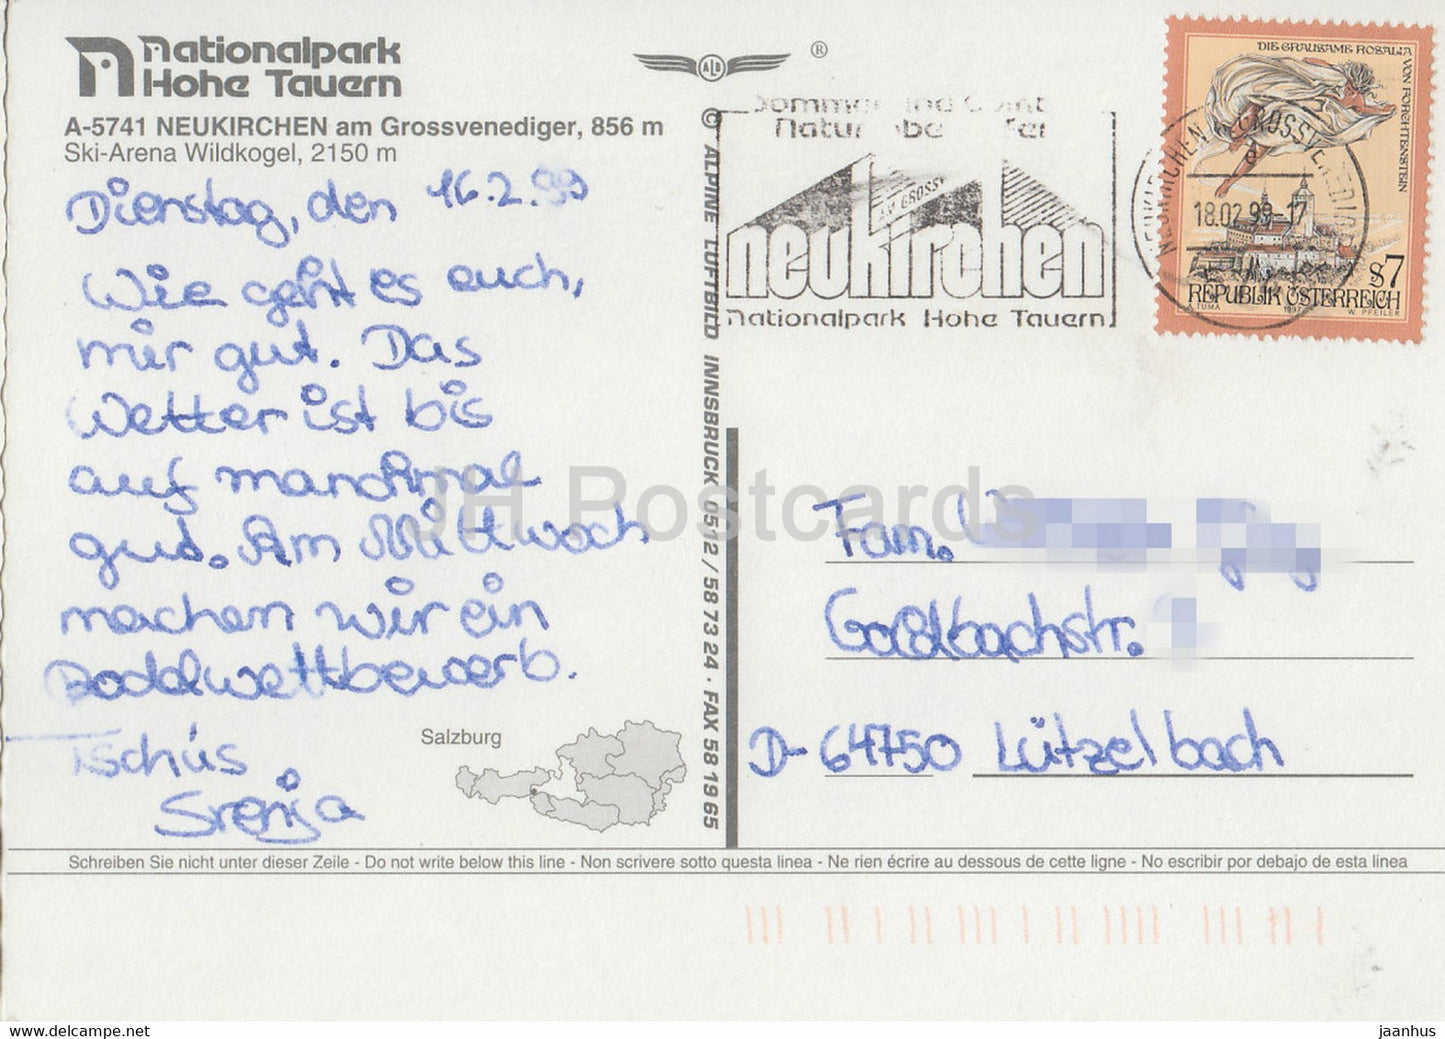 Nationalpark
Hohe Tauern
A-5741 NEUKIRCHEN am Grossvenediger, 856 m
Ski-Arena Wildkogel, 2150 m
Dienstag, den 16.2.99
Wie geht es euch,
mir gut. Das
Wetter ist bis
auf manchmal
gut. Am Mittwoch
machen wir ein
Boddlwettbewerb.
Tschüs
Svenja
Salzburg
ALB ®
© ALPINE LUFTBILD INNSBRUCK 0512/58 73 24 · FAX 58 19 65
Sommer und
Natur
AM GROSSV
neukirchen
Nationalpark Hohe Tauern
NEUKIRCHEN GROSSVENEDIGER
18.02.99-17
DIE GRAUSAME ROSALIA VON FORCHTENSTEIN
S7
REPUBLIK ÖSTERREICH
A. TUMA 1997 W. PFEILER
Fam.
Goldbachstr.
D-64750 Lützelbach
JH Postcards
Schreiben Sie nicht unter dieser Zeile - Do not write below this line - Non scrivere sotto questa linea - Ne rien écrire au dessous de cette ligne - No escribir por debajo de esta linea
delcampe.net
jaanhus